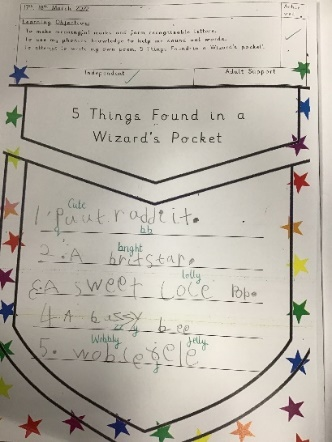 March
Learning Objective:
To make meaningful marks and form recognisable letters.
To use my phonics knowledge to help me sound out words.
To attempt to write my own poem, 5 Things Found in a Wizard's pocket.
Independent
Adult Support
5 Things Found in a
Wizard's Pocket
Cute
1. raddit.
bb
bright
2. A britstar.
lolly
3A sweet Pop.
4 A bassy bee
Wobbly Jelly
5.